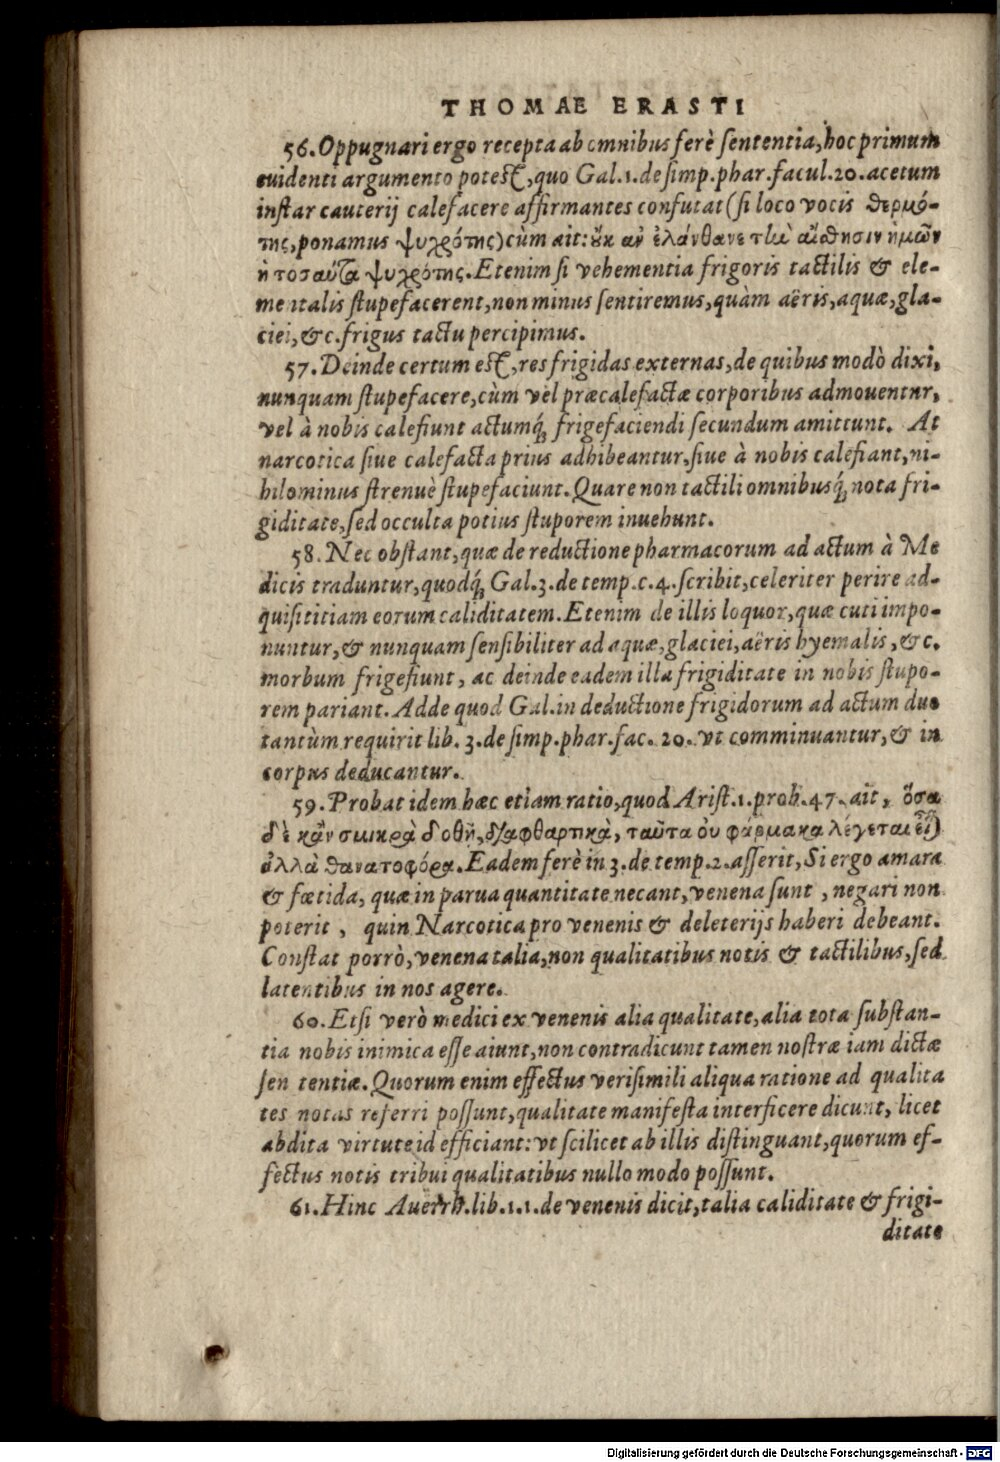 THOMAE ERASTI
56. Oppugnari ergo recepta ab omnibus ferè sententia, hoc primum
euidenti argumento potest, quo Gal. 1. de simp. phar. facul. 20. acetum
instar cauterij calefacere affirmantes confutat (si loco vocis θερμό-
της, ponamus ψυχρότης) cùm ait: ȣ̓κ ἀν ἐλάνθανε τὴν αἴσθησιν ἡμῶν
ἡ τοσαύτη ψυχρότης. Etenim si vehementia frigoris tactilis & ele-
mentalis stupefacerent, non minus sentiremus, quàm aëris, aquæ, gla-
ciei, &c. frigus tactu percipimus.
57. Deinde certum est, res frigidas externas, de quibus modò dixi,
nunquam stupefacere, cùm vel præcalefactæ corporibus admouentur,
vel à nobis calefiunt actumq́; frigefaciendi secundum amittunt. At
narcotica siue calefacta prius adhibeantur, siue à nobis calefiant, ni-
hilominus strenuè stupefaciunt. Quare non tactili omnibusq́; nota fri-
giditate, sed occulta potius stuporem inuehunt.
58. Nec obstant, quæ de reductione pharmacorum ad actum à Me
dicis traduntur, quodq́; Gal. 3. de temp. c. 4. scribit, celeriter perire ad-
quisititiam eorum caliditatem. Etenim de illis loquor, quæ cuti impo-
nuntur, & nunquam sensibiliter ad aquæ, glaciei, aëris hyemalis, &c.
morbum frigefiunt, ac deinde eadem illa frigiditate in nobis stupo-
rem pariant. Adde quod Gal. in deductione frigidorum ad actum duo
tantùm requirit lib. 3. de simp. phar. fac. 20. vt comminuantur, & in
corpus deducantur.
59. Probat idem hæc etiam ratio, quod Arist. 1. prob. 47. ait, ὅσα
δὲ κἂν σμικρὰ δοθῇ, διαφθαρτικὰ, ταῦτα ὀυ φάρμακα λέγεται εἶναι
ἀλλὰ θανατοφόρα. Eadem ferè in 3. de temp. 2. asserit, Si ergo amara
& fœtida, quæ in parua quantitate necant, venena sunt, negari non
poterit, quin Narcotica pro venenis & deleterijs haberi debeant.
Constat porrò, venena talia, non qualitatibus notis & tactilibus, sed
latentibus in nos agere.
60. Etsi verò medici ex venenis alia qualitate, alia tota substan-
tia nobis inimica esse aiunt, non contradicunt tamen nostræ iam dictæ
sen tentiæ. Quorum enim effectus verisimili aliqua ratione ad qualita
tes notas referri possunt, qualitate manifesta interficere dicunt, licet
abdita virtute id efficiant: vt scilicet ab illis distinguant, quorum ef-
fectus notis tribui qualitatibus nullo modo possunt.
61. Hinc Auerrh. lib. 1. 1. de venenis dicit, talia caliditate & frigi-
ditate
Digitalisierung gefördert durch die Deutsche Forschungsgemeinschaft - DFG